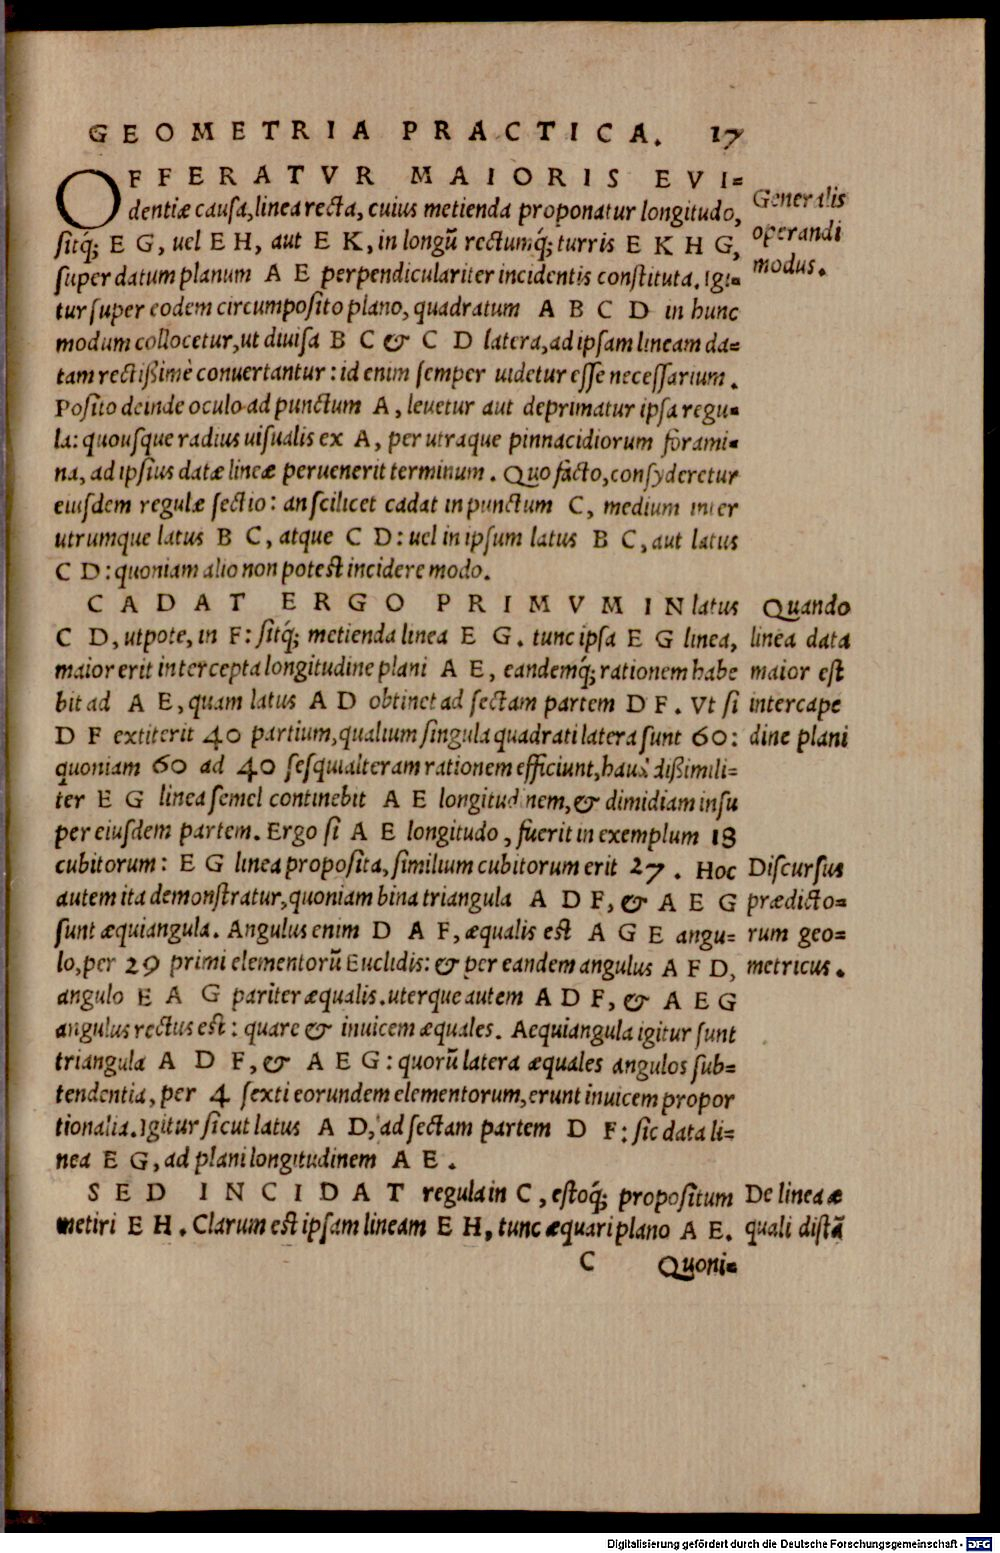 GEOMETRIA PRACTICA. 17
OFFERATVR MAIORIS EVI=
dentiæ causa, linea recta, cuius metienda proponatur longitudo,
sitq́; E G, uel E H, aut E K, in longũ rectumq́; turris E K H G,
super datum planum A E perpendiculariter incidentis constituta. Igi=
tur super eodem circumposito plano, quadratum A B C D in hunc
modum collocetur, ut diuisa B C & C D latera, ad ipsam lineam da=
tam rectißimè conuertantur: id enim semper uidetur esse necessarium.
Posito deinde oculo ad punctum A, leuetur aut deprimatur ipsa regu=
la: quousque radius uisualis ex A, per utraque pinnacidiorum forami=
na, ad ipsius datæ lineæ peruenerit terminum. Quo facto, consyderetur
eiusdem regulæ sectio: an scilicet cadat in punctum C, medium inter
utrumque latus B C, atque C D: uel in ipsum latus B C, aut latus
C D: quoniam alio non potest incidere modo.
Generalis
operandi
modus.
CADAT ERGO PRIMVM IN latus
C D, utpote, in F: sitq́; metienda linea E G. tunc ipsa E G linea,
maior erit intercepta longitudine plani A E, eandemq́; rationem habe
bit ad A E, quam latus A D obtinet ad sectam partem D F. Vt si
D F extiterit 40 partium, qualium singula quadrati latera sunt 60:
quoniam 60 ad 40 sesquialteram rationem efficiunt, haud dißimili=
ter E G linea semel continebit A E longitudinem, & dimidiam insu
per eiusdem partem. Ergo si A E longitudo, fuerit in exemplum 18
cubitorum: E G linea proposita, similium cubitorum erit 27. Hoc
autem ita demonstratur, quoniam bina triangula A D F, & A E G
sunt æquiangula. Angulus enim D A F, æqualis est A G E angu=
lo, per 29 primi elementorũ Euclidis: & per eandem angulus A F D,
angulo E A G pariter æqualis. uterque autem A D F, & A E G
angulus rectus est: quare & inuicem æquales. Aequiangula igitur sunt
triangula A D F, & A E G: quorũ latera æquales angulos sub=
tendentia, per 4 sexti eorundem elementorum, erunt inuicem propor
tionalia. Igitur sicut latus A D, ad sectam partem D F: sic data li=
nea E G, ad plani longitudinem A E.
Quando
linea data
maior est
intercape
dine plani
Discursus
prædicto=
rum geo=
metricus.
SED INCIDAT regula in C, estoq́; propositum
metiri E H. Clarum est ipsam lineam E H, tunc æquari plano A E.
De linea æ
quali distã
C Quoni=
Digitalisierung gefördert durch die Deutsche Forschungsgemeinschaft - DFG